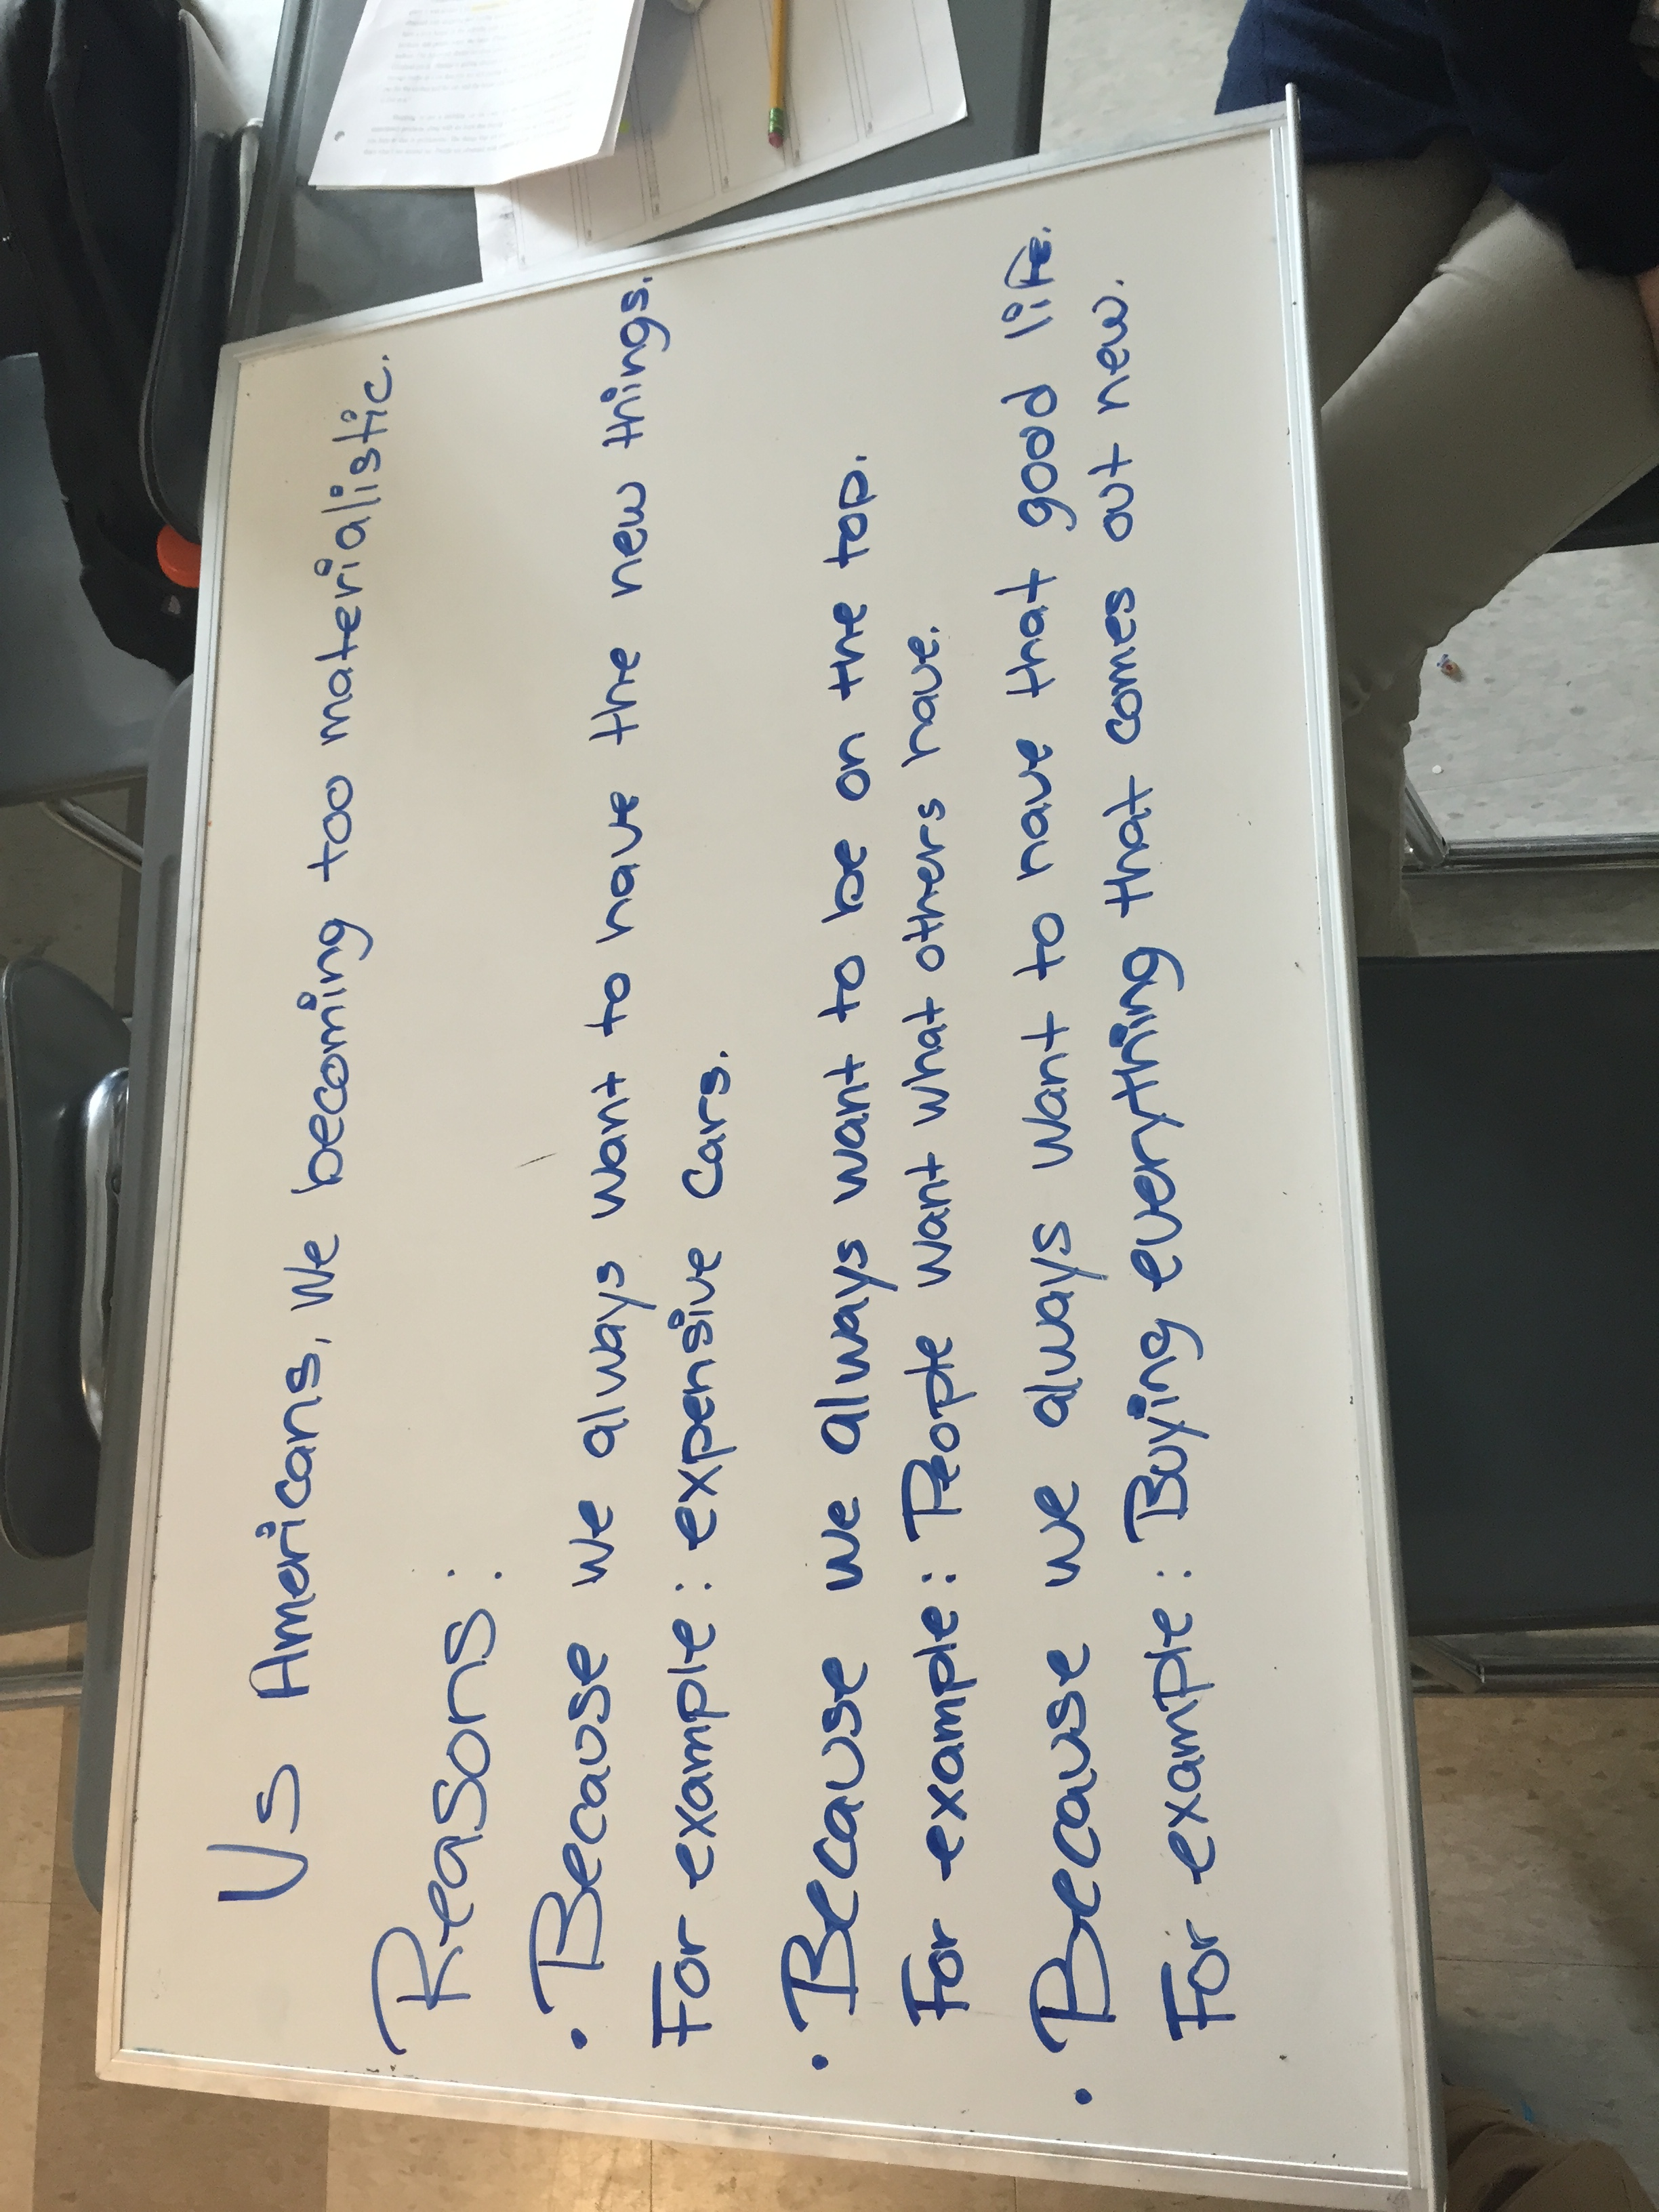 Us Americans, We becoming too materialistic.
Reasons:
• Because we always want to have the new things.
For example: expensive cars.
• Because we always want to be on the top.
For example: People want what others have.
• Because we always want to have that good life.
For example: Buying everything that comes out new.